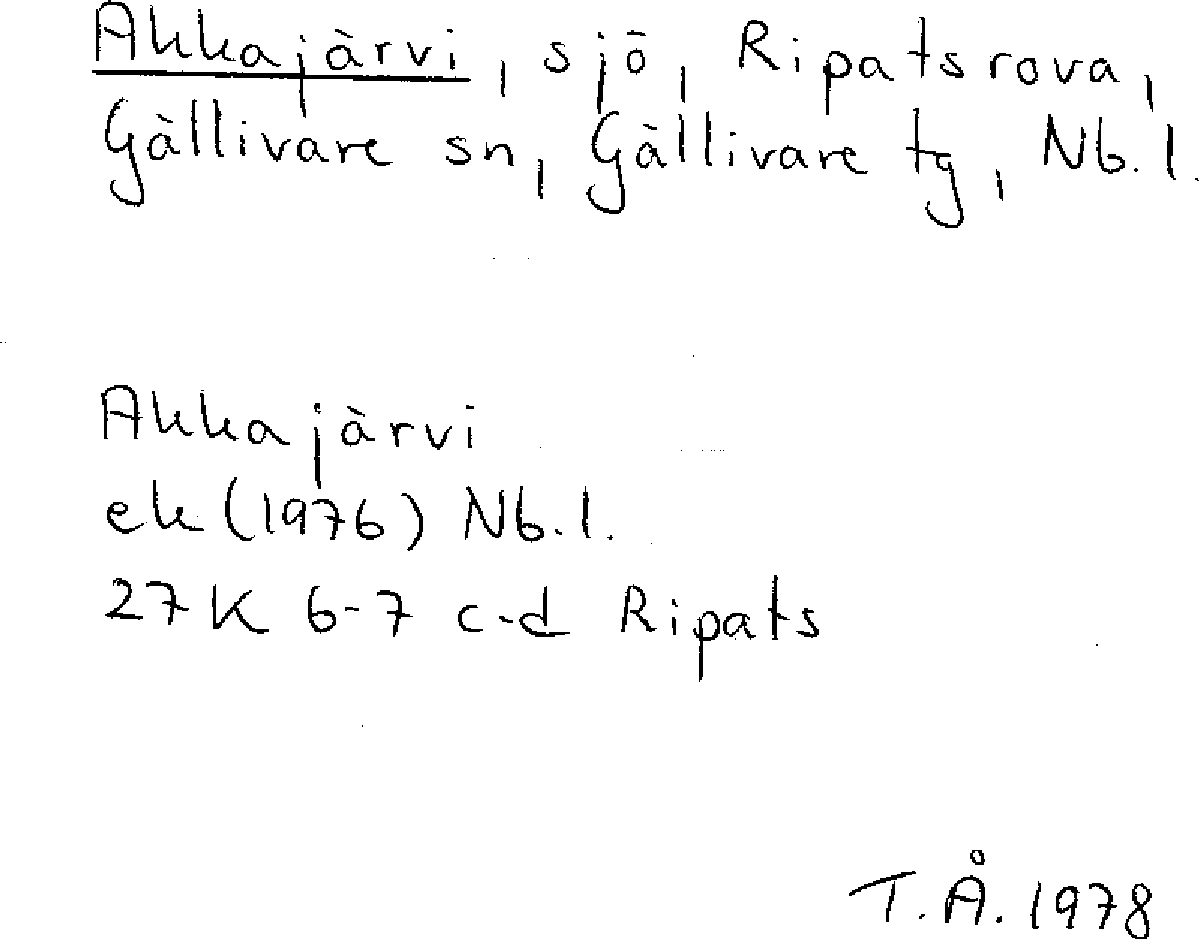 Akkajärvi, sjö, Ripatsrova,
Gällivare sn, Gällivare tg, Nb. l.
Akkajärvi
ek (1976) Nb. l.
27 K 6-7 c-d Ripats
T. Å. 1978